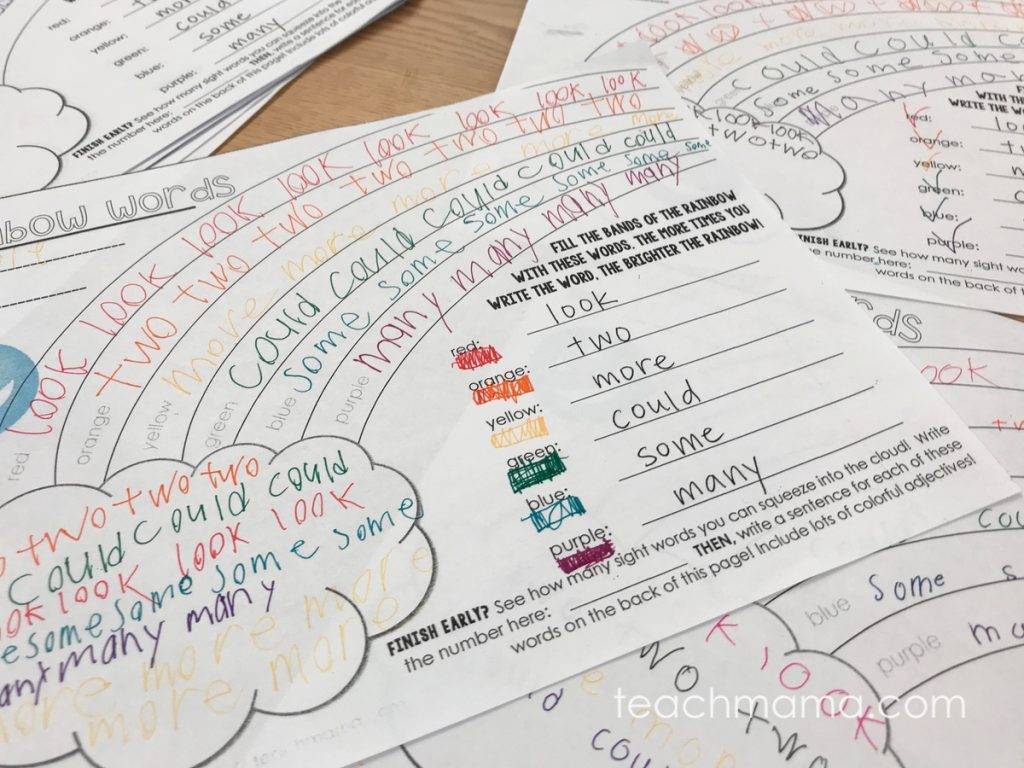 orange:
yellow:
green:
blue:
purple:
more
could
some
many
FINISH EARLY? See how many sight words you can squeeze into the
the number here:
words on the back of this page! Include lots of colorful
THEN, write a sentence for each
bow words
red
look look look look look look look look
orange
two two two two two two
yellow
more more more more more
green
could could could could could
blue
some some some some some some
purple
many many many many many
FILL THE BANDS OF THE RAINBOW
WITH THESE WORDS. THE MORE TIMES YOU
WRITE THE WORD, THE BRIGHTER THE RAINBOW!
red: look
orange: two
yellow: more
green: could
blue: some
purple: many
two two two
could could could
look look look look
some some some some
many many
more more more
more more more
FINISH EARLY? See how many sight words you can squeeze into the cloud! Write
the number here:
THEN, write a sentence for each of these
words on the back of this page! Include lots of colorful adjectives!
could could
some some some
many
look look
two two
WRITE THE
red:
orange:
yellow:
green:
blue:
purple:
FINISH EARLY? See how many sight word
the number here:
words on the back of
look
blue some
purple
look
two
teachmama.com